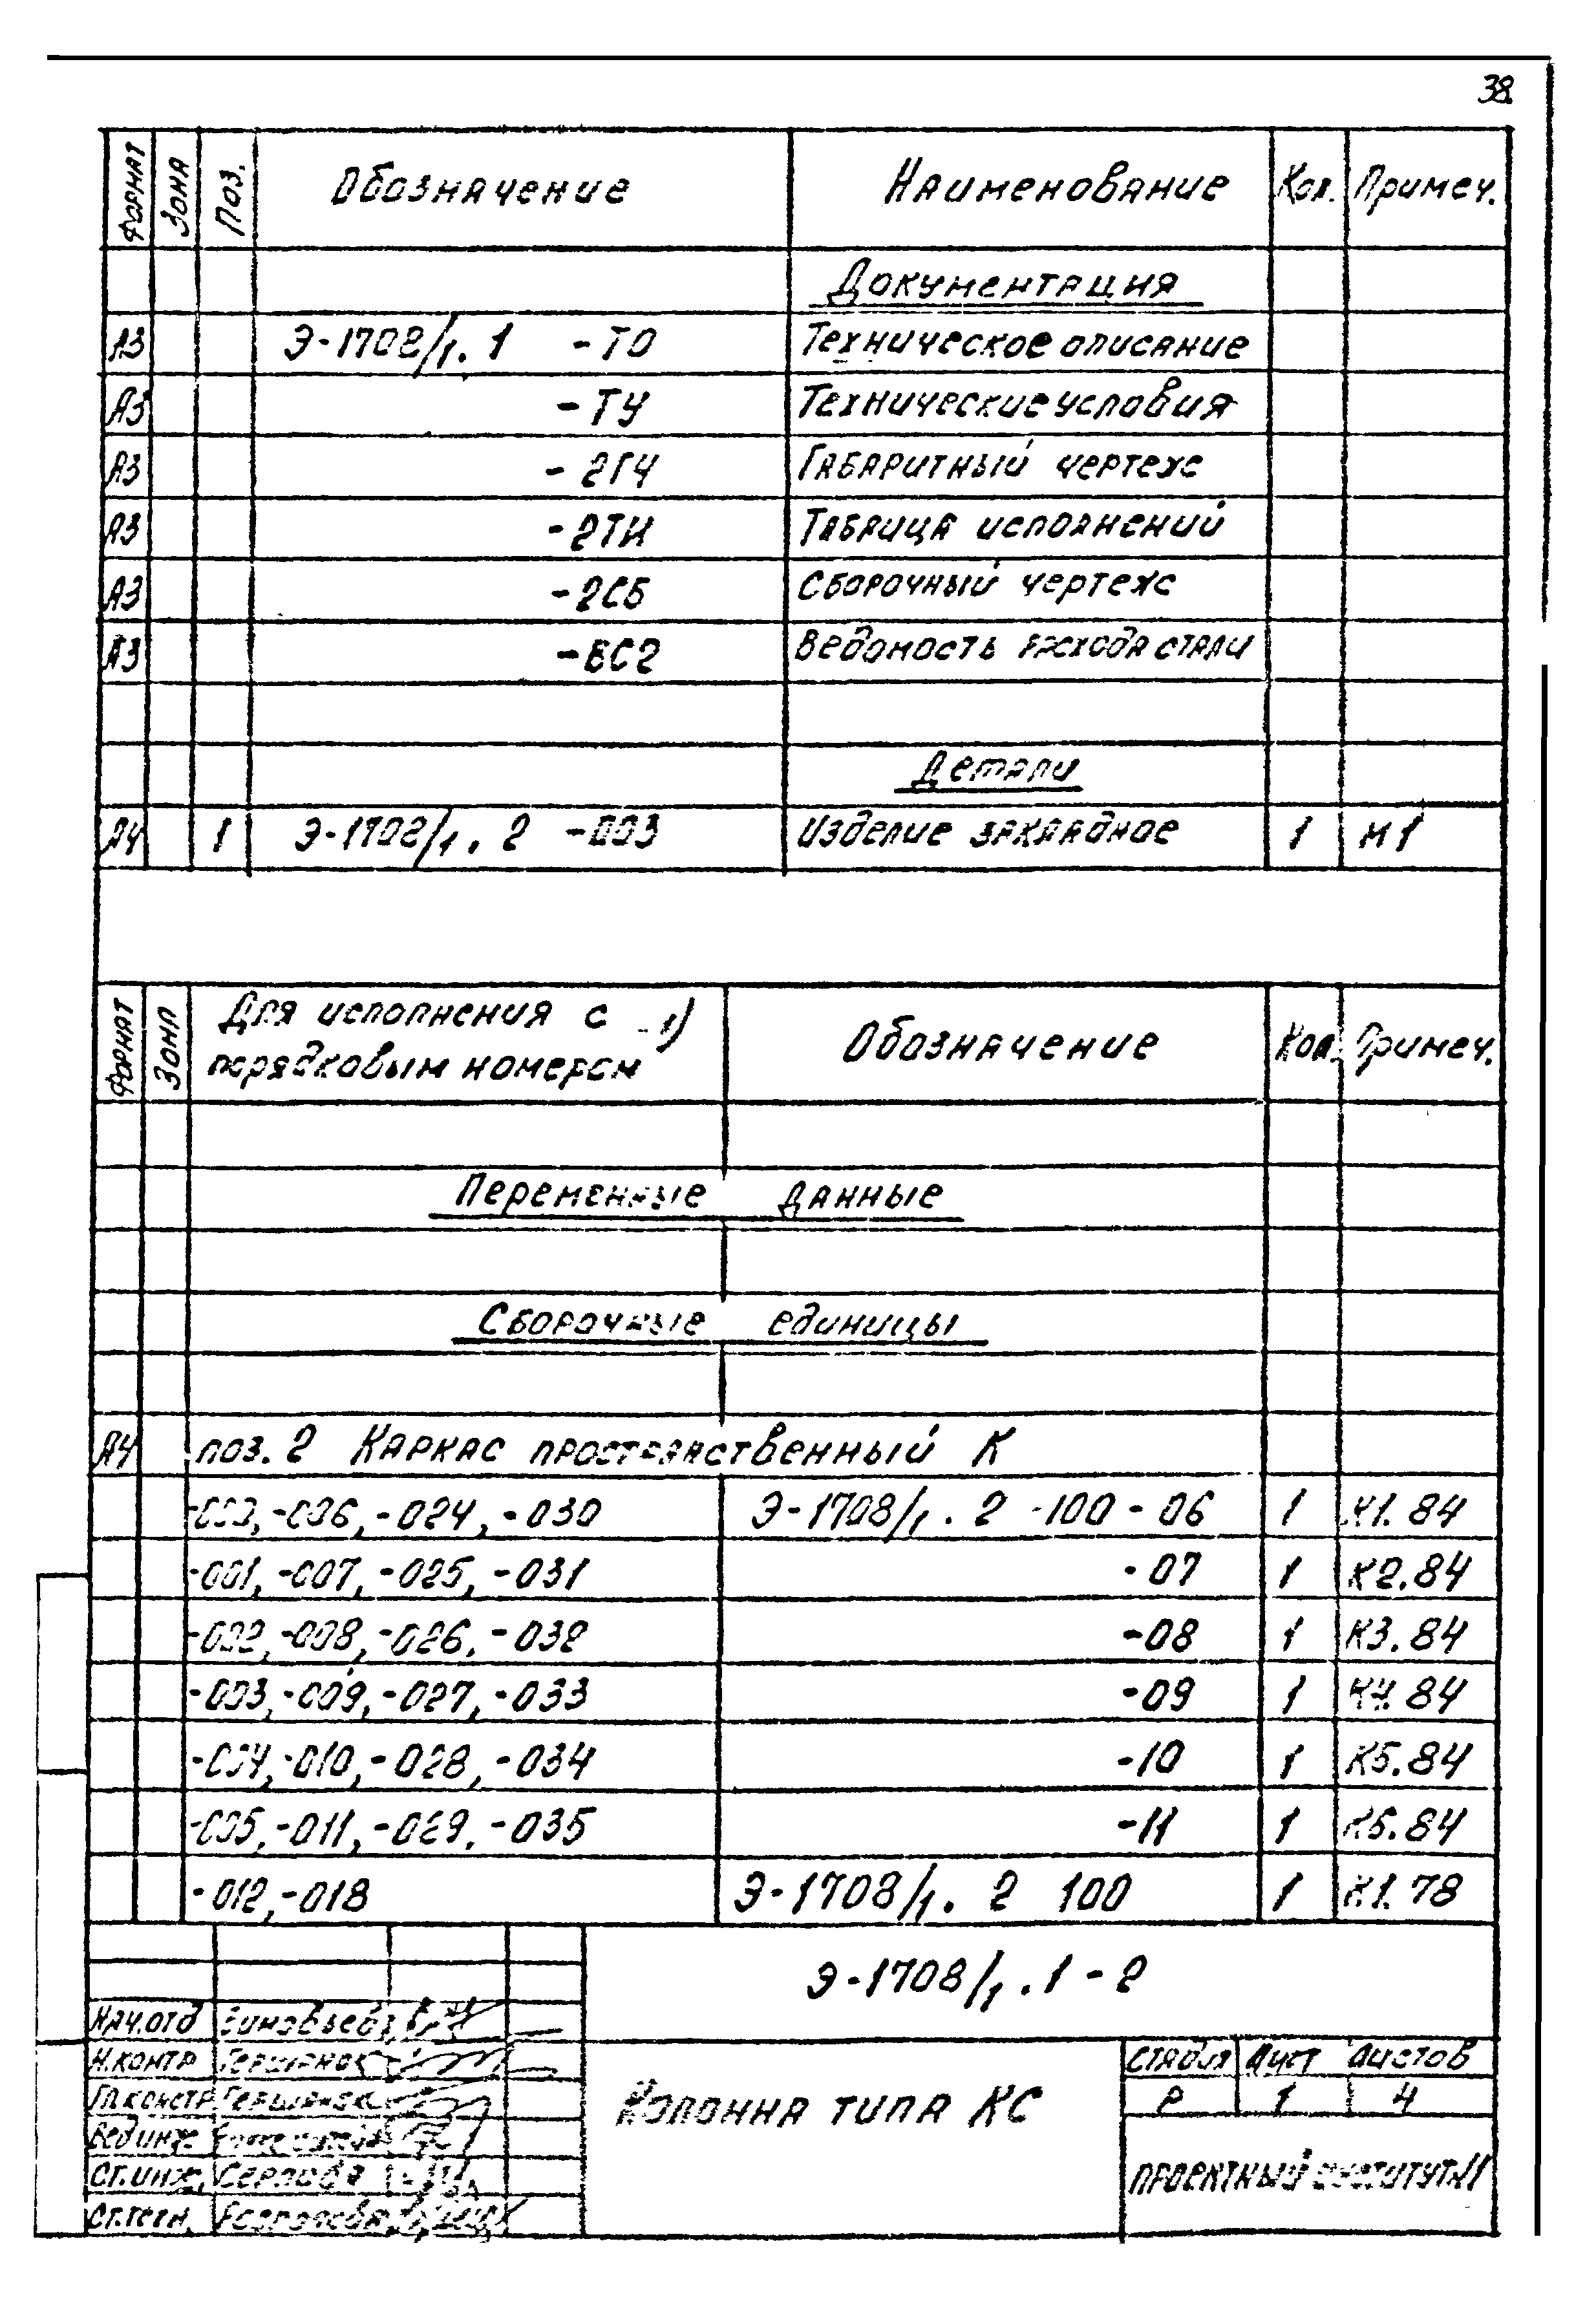 38
Формат Зона Поз. Обозначение Наименование Кол. Примеч.
Документация
А3 Э-1708/1. 1 -ТО Техническое описание
А3 -ТУ Технические условия
А3 -2ГЧ Габаритный чертеж
А3 -2ТИ Таблица исполнений
А3 -2СБ Сборочный чертеж
А3 -ВС2 Ведомость расхода стали
Детали
А4 1 Э-1708/1. 2 -003 Изделие закладное 1 М1
Формат Зона Для исполнения с порядковым номером -1) Обозначение Кол. Примеч.
Переменные данные
Сборочные единицы
А4 поз. 2 Каркас пространственный К
-000, -006, -024, -030 Э-1708/1. 2 -100 - 06 1 К1. 84
-001, -007, -025, -031 -07 1 К2. 84
-002, -008, -026, -032 -08 1 К3. 84
-003, -009, -027, -033 -09 1 К4. 84
-004, -010, -028, -034 -10 1 К5. 84
-005, -011, -029, -035 -11 1 К6. 84
-012, -018 Э-1708/1. 2 100 1 К1. 78
Э-1708/1. 1 - 2
Нач.отд Зиновьев
Н.контр
Гл.констр
Вед.инж
Ст.инж.
Ст.техн.
Колонна типа КС
Стадия Лист Листов
Р 1 4
Проектный институт №1